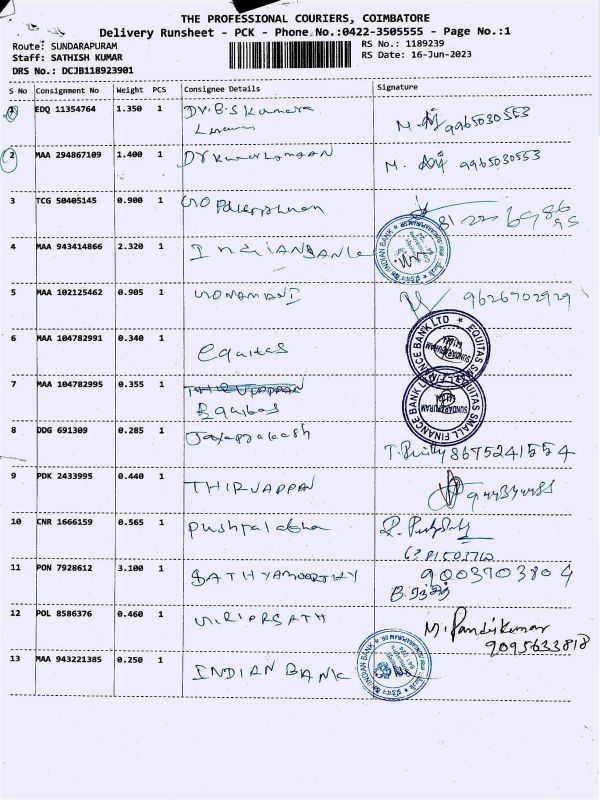 THE PROFESSIONAL COURIERS, COIMBATORE
Delivery Runsheet - PCK - Phone No.:0422-3505555 - Page No.:1
Route: SUNDARAPURAM
Staff: SATHISH KUMAR
DRS No.: DCJB118923901
RS No.: 1189239
RS Date: 16-Jun-2023
S No Consignment No Weight PCS Consignee Details Signature
1 EDQ 11354764 1.350 1
9965030553
2 MAA 294867109 1.400 1
9965030553
3 TCG 50405145 0.900 1
4 MAA 943414866 2.320 1 INDIANBANK
INDIAN BANK
5 MAA 102125462 0.905 1 9626702929
6 MAA 104782991 0.340 1 equitas
EQUITAS SMALL FINANCE BANK LTD
SUNDARAPURAM
7 MAA 104782995 0.355 1 THIRUVAPPAN
Equitas
EQUITAS SMALL FINANCE BANK LTD
SUNDARAPURAM
8 DDG 691309 0.285 1 Jayaprakash
8675241554
9 PDK 2433995 0.440 1 THIRUVAPPAN
10 CNR 1666159 0.565 1 Pushpalatha
11 PON 7928612 3.100 1 SATHYAMOORTHY 9003703804
12 POL 8586376 0.460 1
M. Pandikumar
9095633818
13 MAA 943221385 0.250 1 INDIAN BANK
INDIAN BANK